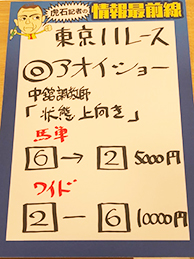 虎石記者の
情報最前線
東京11レース
◎アオイショー
中舘調教師
「状態上向き」
馬単
6→2 5000円
ワイド
2-6 10000円